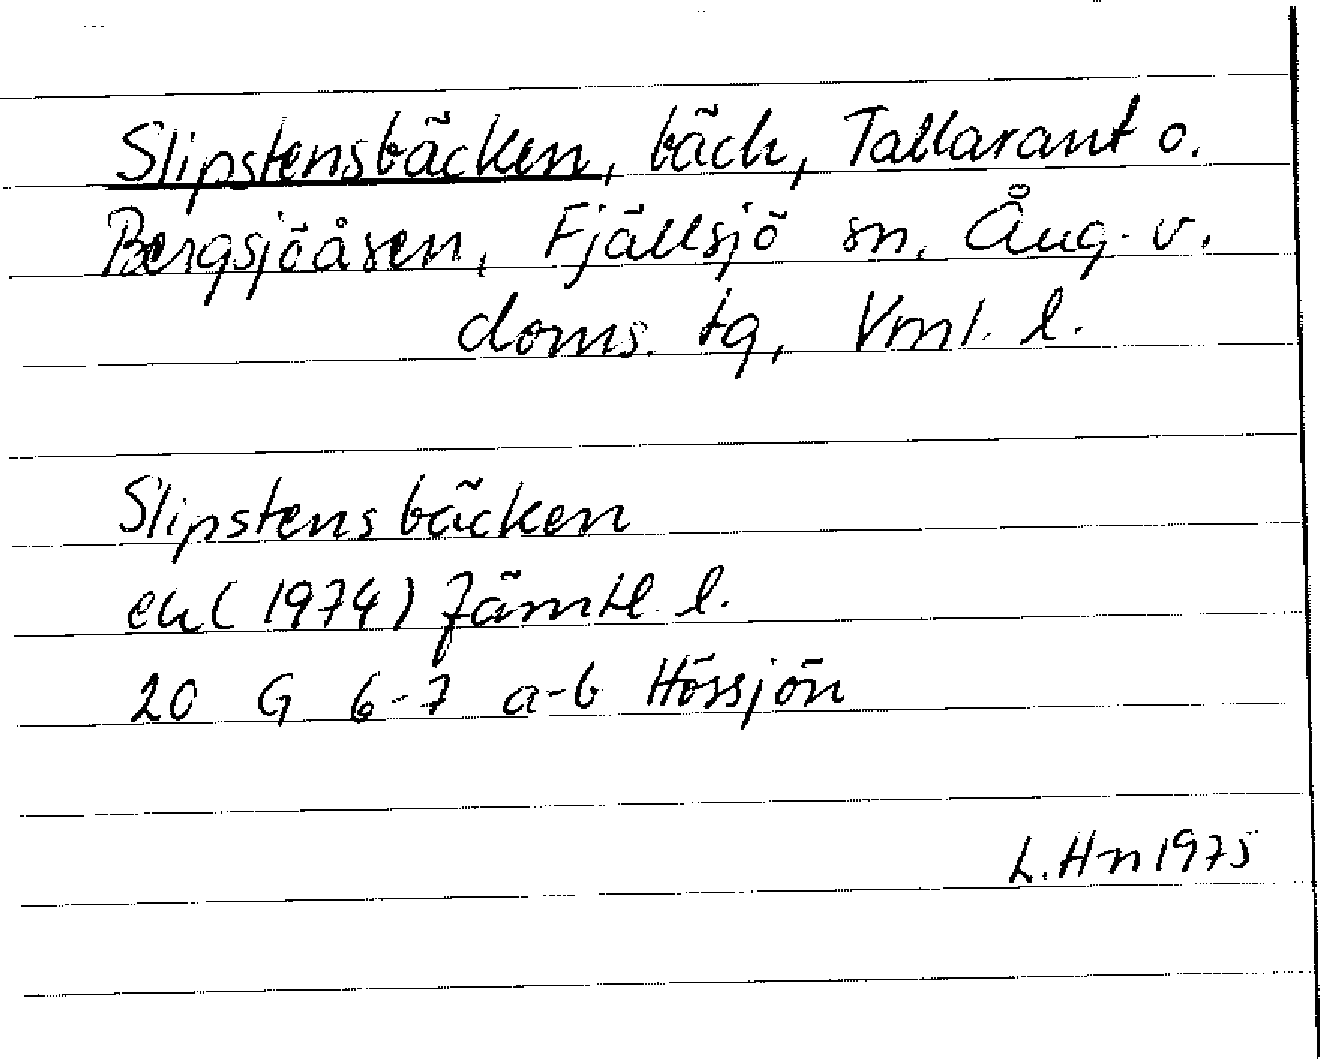 Slipstensbäcken, bäck, Tallarant o.
Bergsjöåsen, Fjällsjö sn. Ång. v.
doms. tg, Vrnl. l.
Slipstensbäcken
ek (1974) Jämtl. l.
20 G 6-7 a-b Hössjön
L. Hn 1975